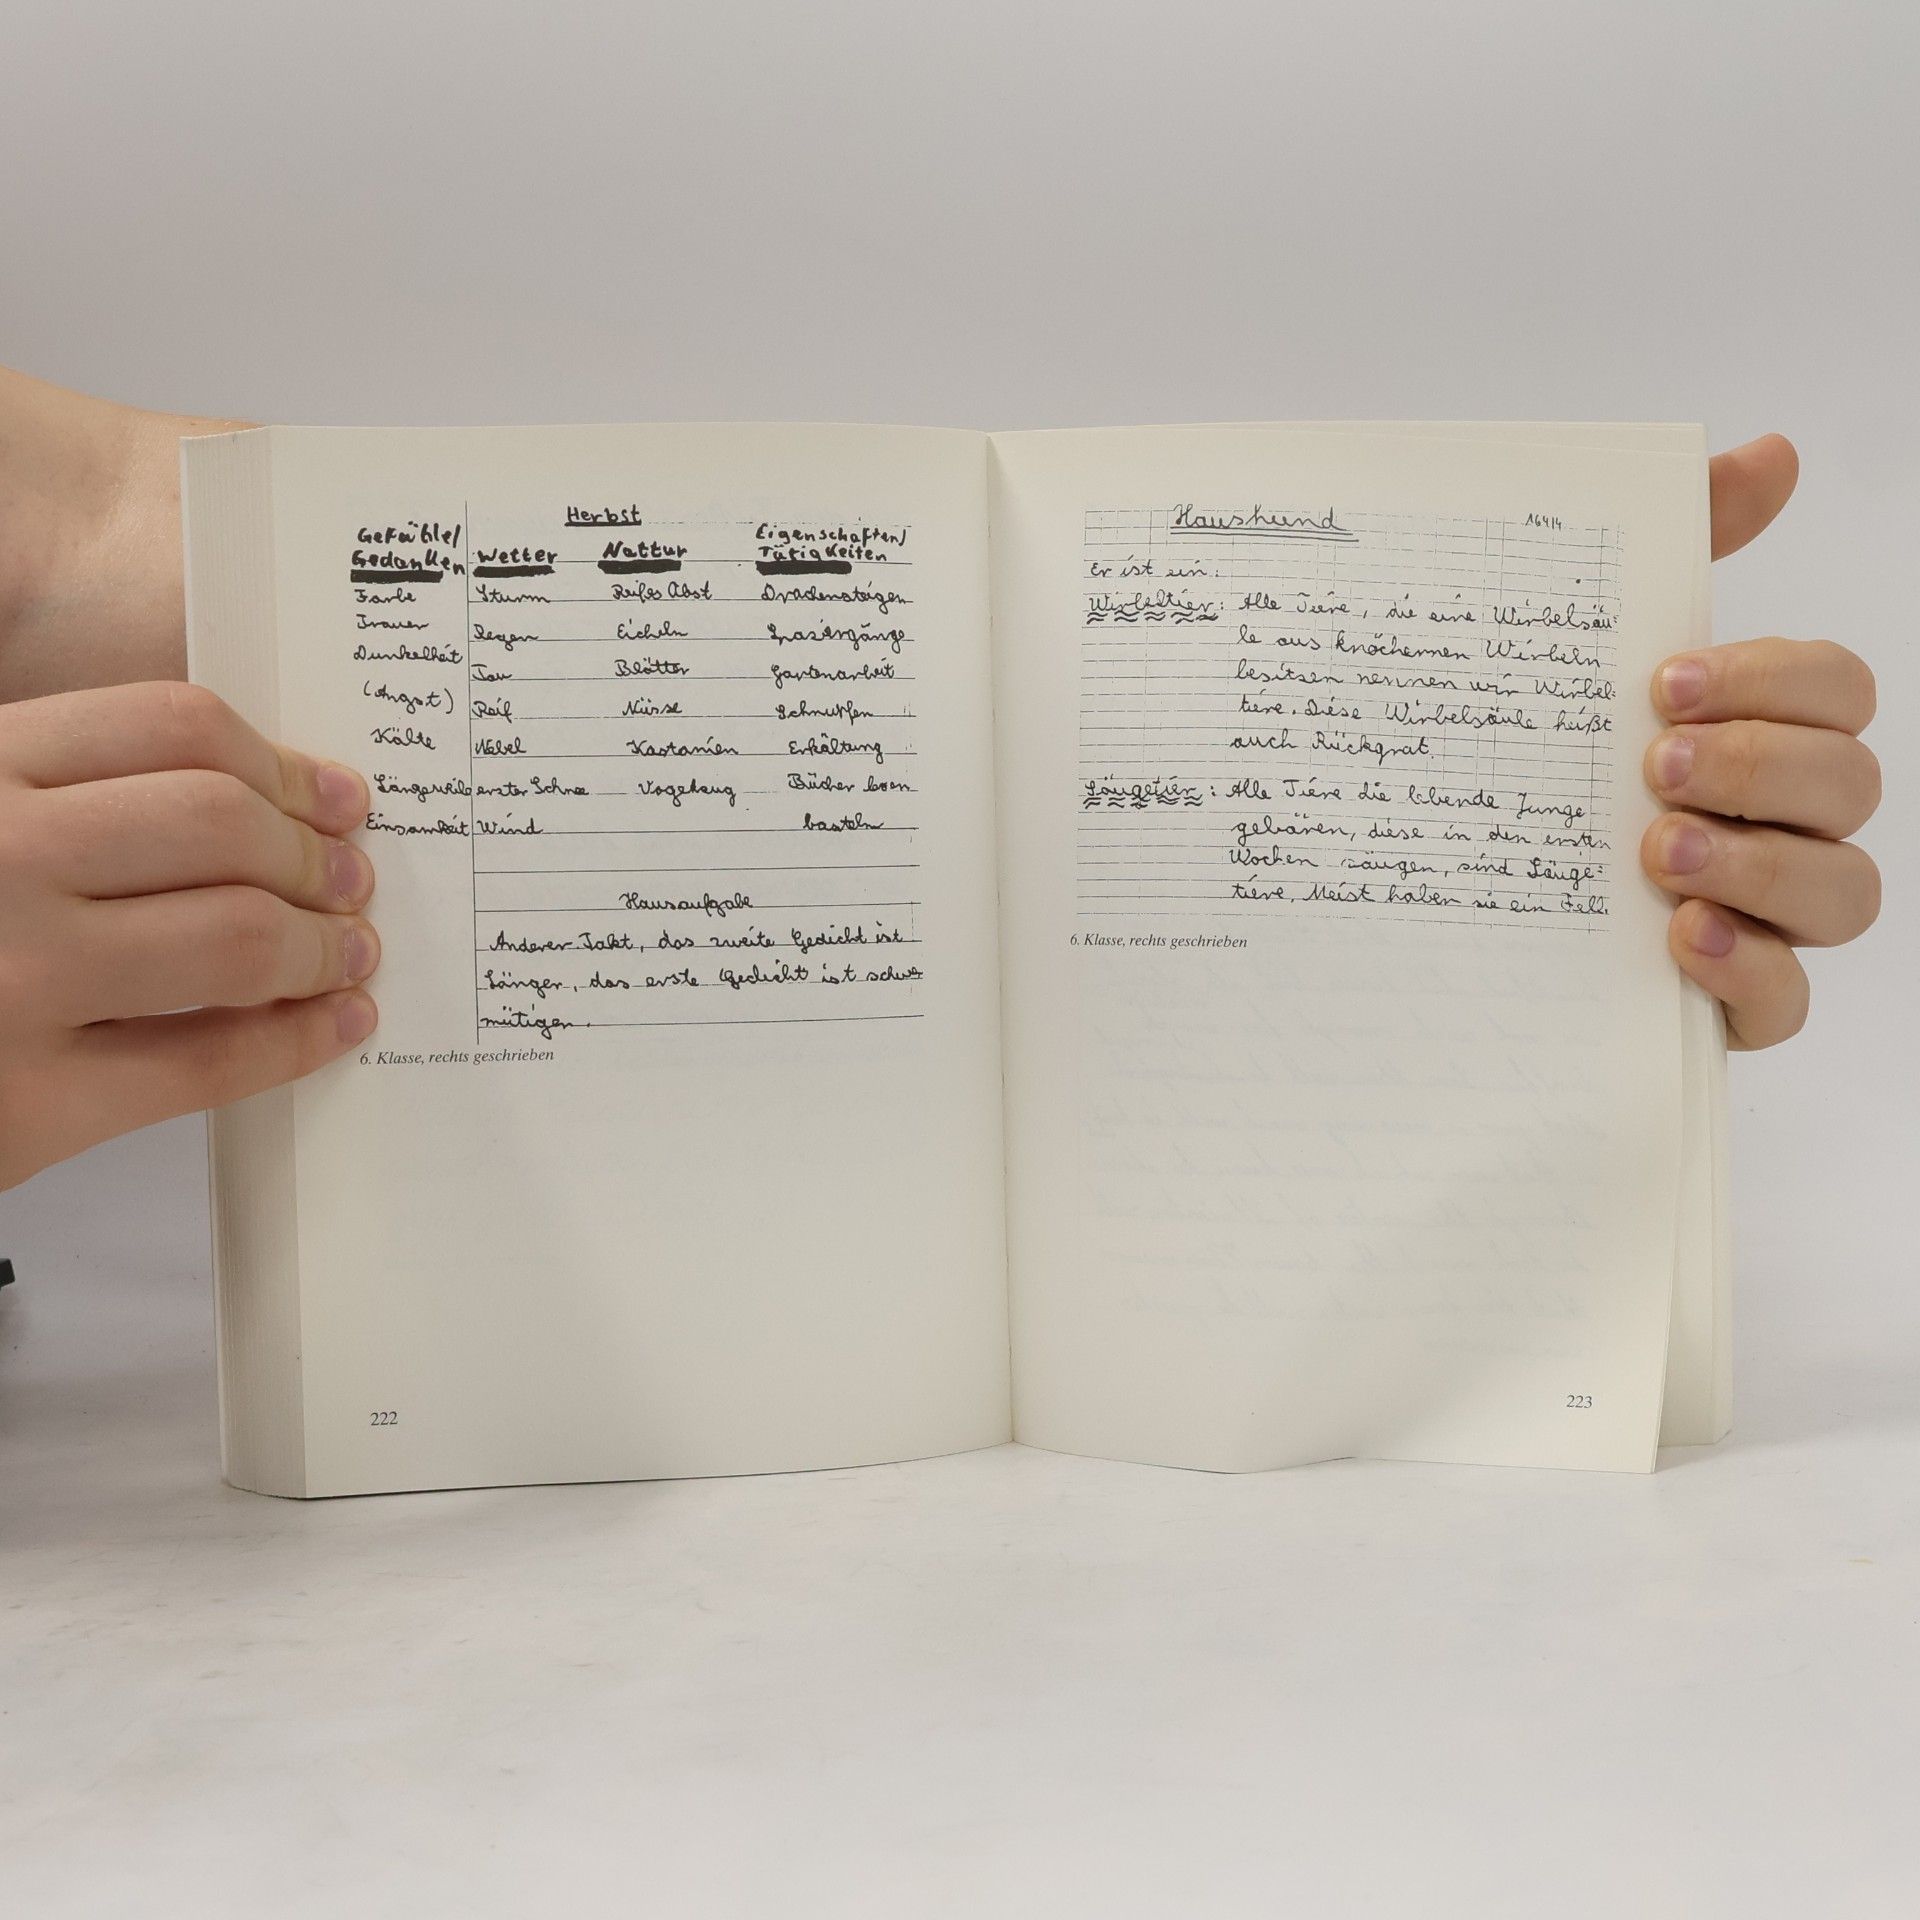 Herbst
Gefühle/
Gedanken
Wetter
Nattur
Eigenschaften/
Tätigkeiten
Farbe Sturm Reifes Obst Drachensteigen
Trauer Regen Eicheln Spaziergänge
Dunkelheit Tau Blätter Gartenarbeit
(Angst) Reif Nüsse Schnupfen
Kälte Nebel Kastanien Erkältung
Längeweile erster Schnee Vogelzug Bücher lesen
Einsamkeit Wind basteln
Hausaufgabe
Anderer Takt, das zweite Gedicht ist
Länger, das erste Gedicht ist schwer
mütiger.
6. Klasse, rechts geschrieben
222
Haushund
Er ist ein:
Wirbeltier: Alle Tiere, die eine Wirbelsäu=
le aus knöchernen Wirbeln
besitzen nennen wir Wirbel=
tiere. Diese Wirbelsäule heißt
auch Rückgrat.
Säugetier: Alle Tiere die lebende Junge
gebären, diese in den ersten
Wochen säugen, sind Säuge=
tiere. Meist haben sie ein Fell.
6. Klasse, rechts geschrieben
223